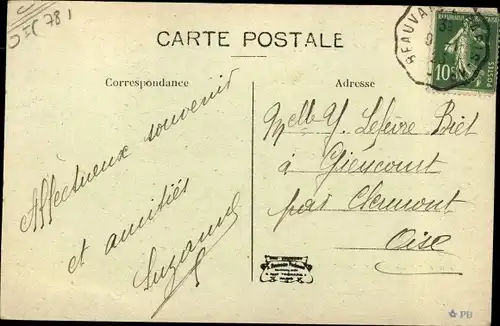 CARTE POSTALE
Correspondance
Adresse
BEAUVAIS
10c
POSTES
Affectueux souvenir
et amitiés
Suzanne
Melle Y. Lefèvre Biet
à Giencourt
par Clermont
Oise
PB